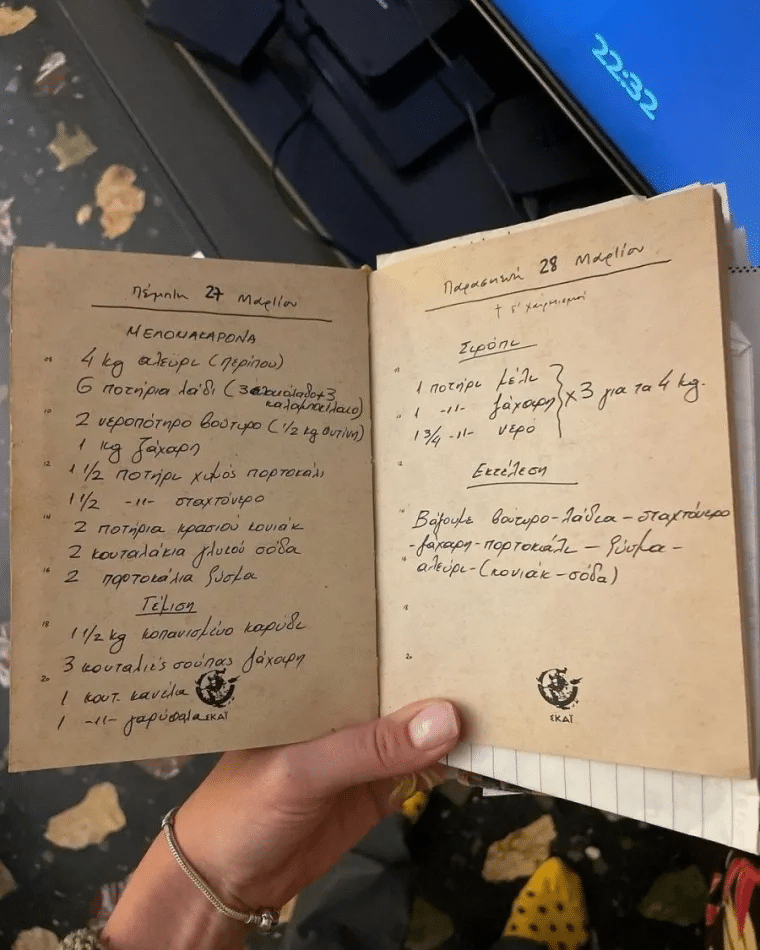 22:32
Πέμπτη 27 Μαρτίου
ΜΕΛΟΜΑΚΑΡΟΝΑ
4 kg αλεύρι (περίπου)
6 ποτήρια λάδι (3 ελαιόλαδο + 3
καλαμποκέλαιο)
2 νεροπότηρο βούτυρο (1/2 kg φυτίνη)
1 kg ζάχαρη
1 1/2 ποτήρι χυμός πορτοκάλι
1 1/2 -11- σταχτόνερο
2 ποτήρια κρασιού κονιάκ
2 κουταλάκια γλυκού σόδα
2 πορτοκάλια ξύσμα
Γέμιση
1 1/2 kg κοπανισμένο καρύδι
3 κουταλιές σούπας ζάχαρη
1 κουτ. κανέλα
1 -11- γαρύφαλα
ΣΚΑΪ
Παρασκευή 28 Μαρτίου
† Δ' Χαιρετισμοί
Σιρόπι
1 ποτήρι μέλι
1 -11- ζάχαρη } x 3 για τα 4 kg.
1 3/4 -11- νερό
Εκτέλεση
Βάζουμε βούτυρο - λάδια - σταχτόνερο
- ζάχαρη - πορτοκάλι - ξύσμα -
αλεύρι - (κονιάκ - σόδα)
ΣΚΑΪ